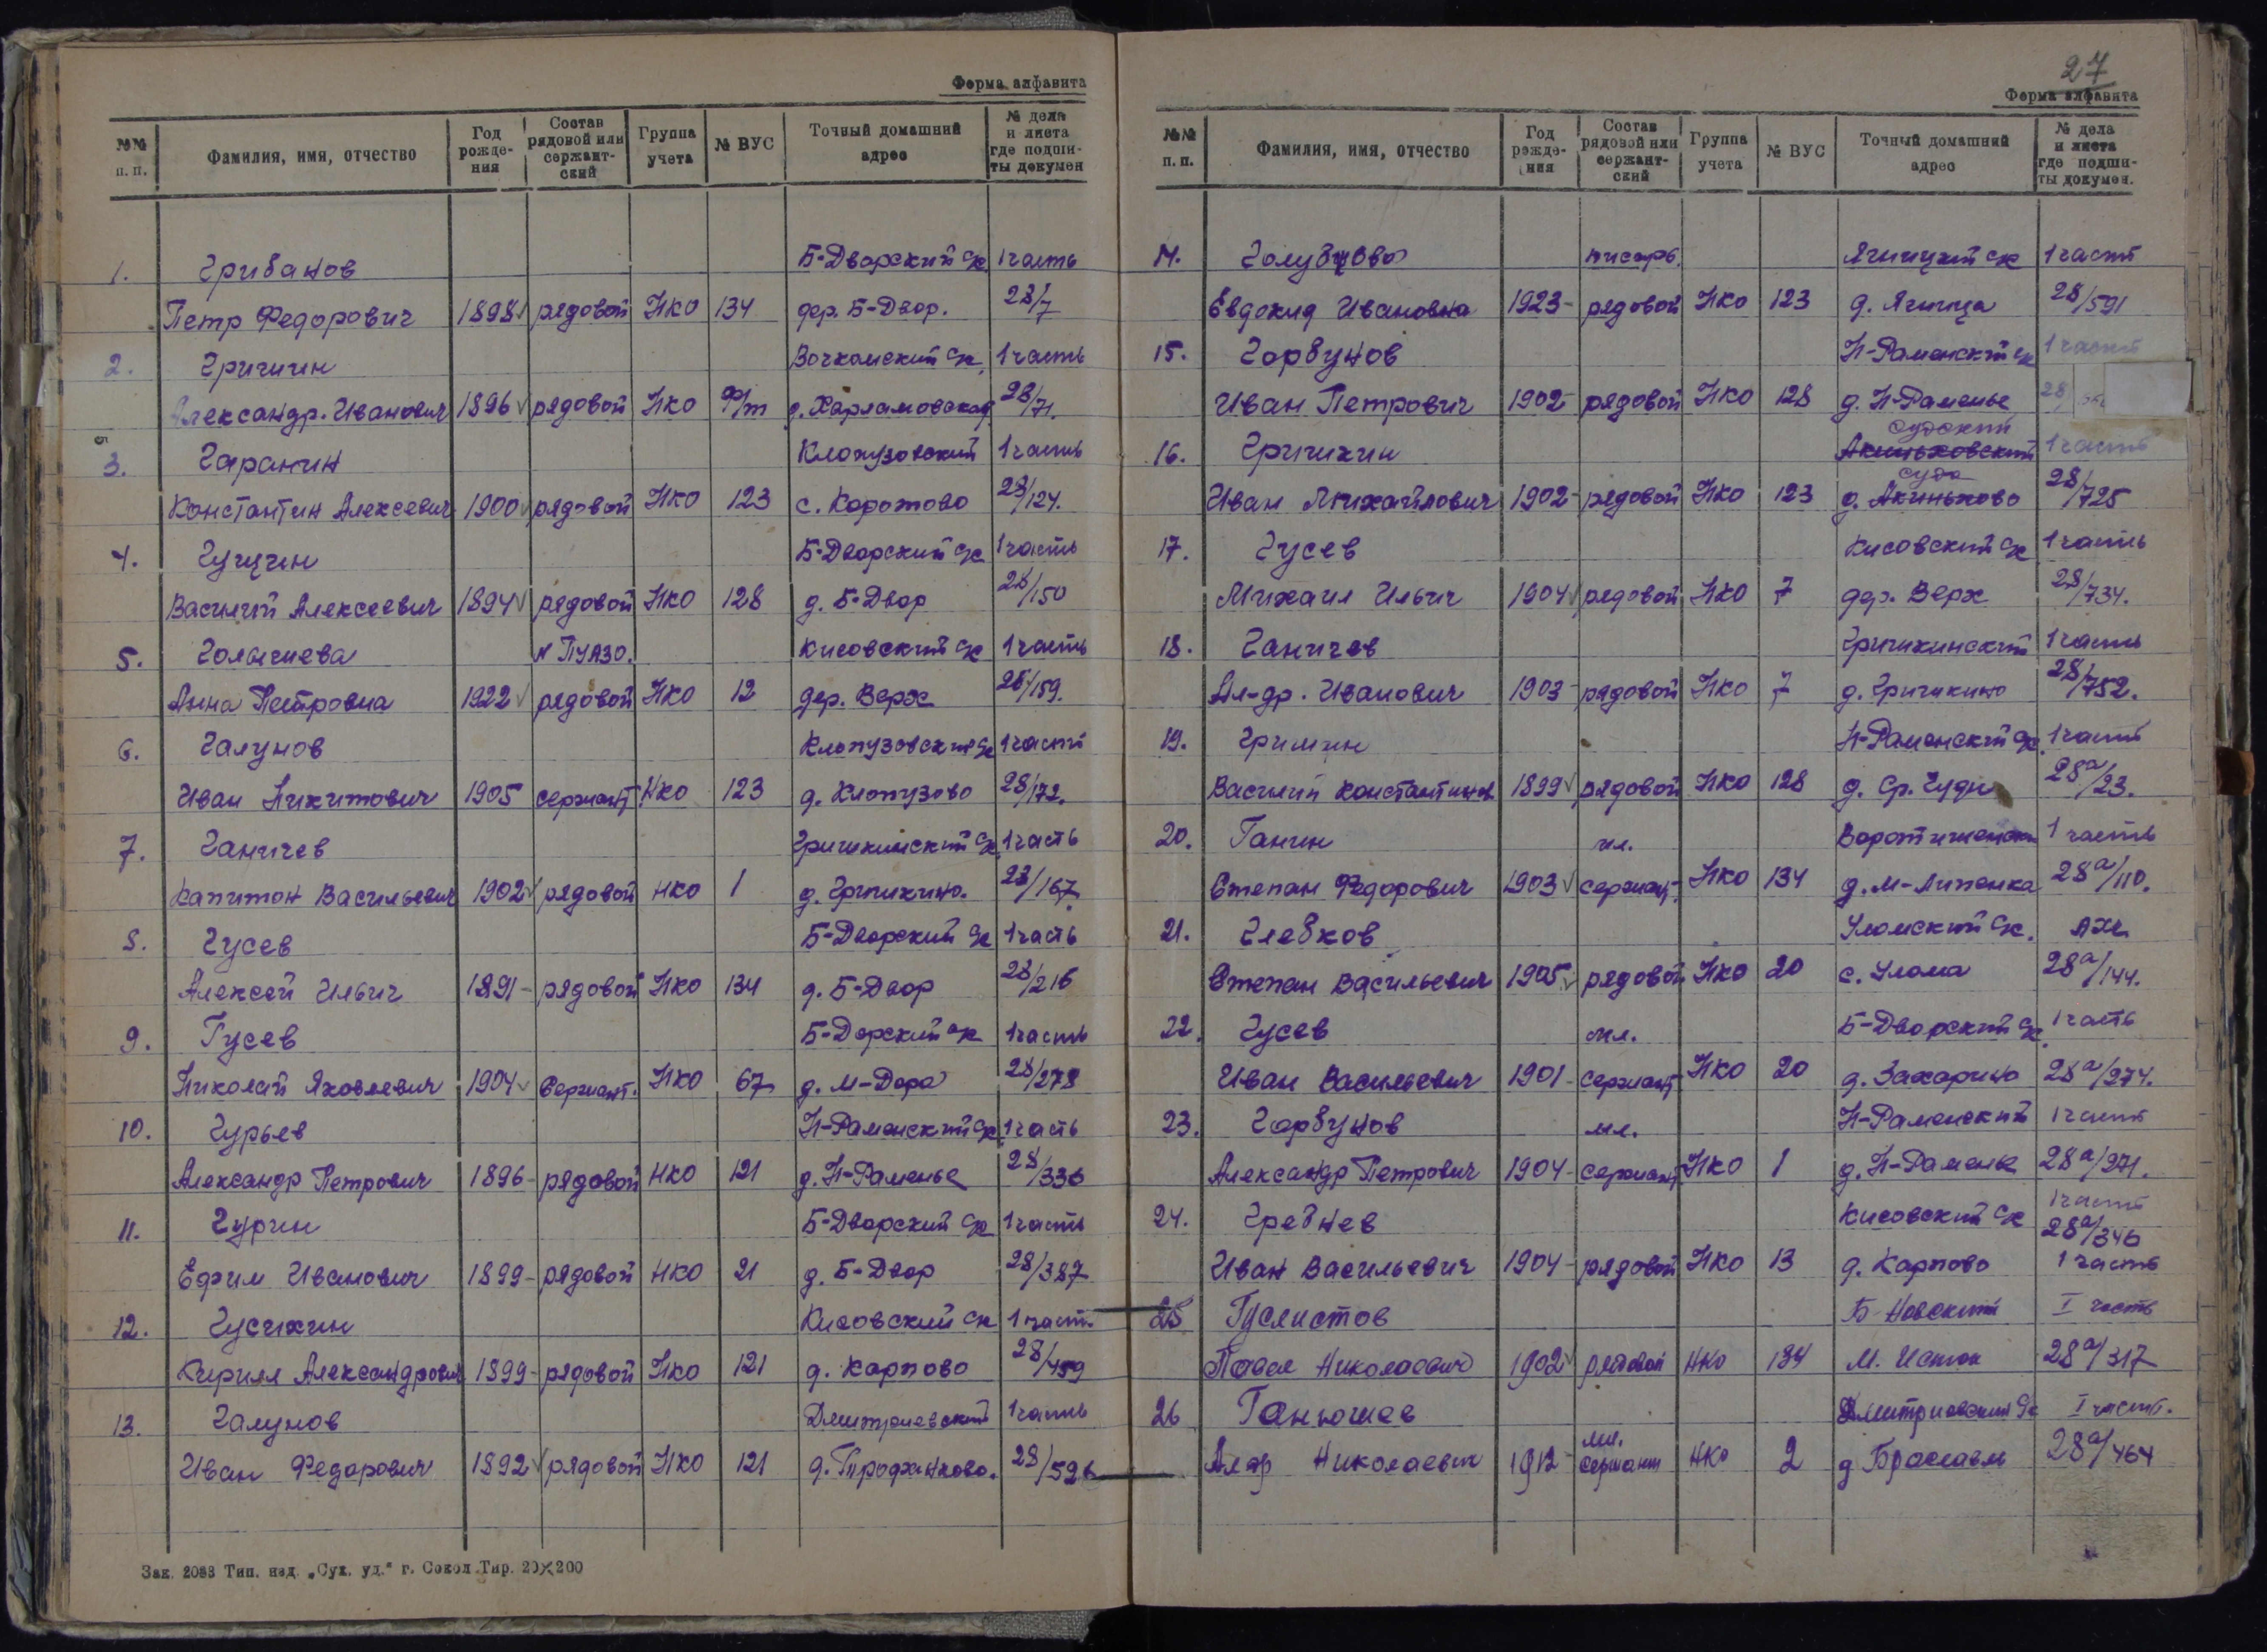 Форма алфавита
№№ п. п. Фамилия, имя, отчество Год рожде- ния Состав рядовой или сержант- ский Группа учета № ВУС Точный домашний адрес № дела и листа где подши- ты докумен
1. Грибанов Б-Дворский с/с 1 часть
Петр Федорович 1898 рядовой НКО 134 дер. Б-Двор. 28/7
2. Гричин 1 часть
Александр Иванович 1896 рядовой НКО д. Харламовская 28/71.
3. Гаранин Клопузовский 1 часть
Константин Алексеевич 1900 рядовой НКО 123 с. Коротово 28/124.
4. Гущин Б-Дворский с/с 1 часть
Василий Алексеевич 1894 рядовой НКО 128 д. Б-Двор 28/150
5. Голычева ПУАЗО. Кисовский с/с 1 часть
Анна Петровна 1922 рядовой НКО 12 дер. Верх 28/159.
6. Галунов Клопузовский с/с 1 часть
Иван Никитович 1905 сержант НКО 123 д. Клопузово 28/172.
7. Ганичев Гришкинский с/с 1 часть
Капитон Васильевич 1902 рядовой НКО 1 д. Гришкино. 28/167
8. Гусев Б-Дворский с/с 1 часть
Алексей Ильич 1891 - рядовой НКО 134 д. Б-Двор 28/216
9. Гусев Б-Дорский с/с 1 часть
Николай Яковлевич 1904 Сержант. НКО 67 д. М-Дора 28/278
10. Гурьев Н-Раменский с/с 1 часть
Александр Петрович 1896 - рядовой НКО 121 д. Н-Раменье 28/336
11. Гурин Б-Дворский с/с 1 часть
Ефим Иванович 1899 - рядовой НКО 21 д. Б-Двор 28/387
12. Гусихин Кисовский с/с 1 часть
Кирилл Александрович 1899 - рядовой НКО 121 д. Карпово 28/459
13. Галунов Дмитриевский 1 часть
Иван Федорович 1892 рядовой НКО 121 д. Трофанково. 28/526
Зак. 2088 Тип. изд. „Сух. уд.“ г. Сокол Тир. 20×200
27
Форма алфавита
№№ п. п. Фамилия, имя, отчество Год рожде- ния Состав рядовой или сержант- ский Группа учета № ВУС Точный домашний адрес № дела и листа где подши- ты докумен.
14. Голубцова писарь. Ягницкий с/с 1 часть
Евдокия Ивановна 1923 - рядовой НКО 123 д. Ягница 28/591
15. Горбунов Н-Раменский с/с 1 часть
Иван Петрович 1902 - рядовой НКО 128 д. Н-Раменье 28
Судский
16. Гричихин Акиньховский 1 часть
Суда
Иван Михайлович 1902 - рядовой НКО 123 д. Акиньхово 28/725
17. Гусев Кисовский с/с 1 часть
Михаил Ильич 1904 рядовой НКО 7 дер. Верх 28/734.
18. Ганичев Гришкинский 1 часть
Ал-др. Иванович 1903 - рядовой НКО 7 д. Гришкино 28/752.
19. Гришин Н-Раменский с/с. 1 часть
Василий Константинов. 1899 рядовой НКО 128 д. Ср. Чуди 28а/23.
20. Ганин мл. 1 часть
Степан Федорович 1903 сержант. НКО 134 д. М-Липенка 28а/110.
21. Глебков Уломский с/с. АХЧ
Степан Васильевич 1905 рядовой НКО 20 с. Улома 28а/144.
22. Гусев мл. Б-Дворский с/с 1 часть
Иван Васильевич 1901 - сержант НКО 20 д. Захарино 28а/274.
23. Горбунов мл. Н-Раменский 1 часть
Александр Петрович 1904 - сержант НКО 1 д. Н-Раменье 28а/271.
24. Гребнев Кисовский с/с 1 часть
28а/346
Иван Васильевич 1904 - рядовой НКО 13 д. Карпово 1 часть
25 Гуслистов Б-Новский I часть
Павел Николаевич 1902 рядовой НКО 134 М. Исток 28а/317
26 Ганюшев Дмитриевский с/с I часть.
мл.
Алдр Николаевич 1912 - сержант НКО 2 д Браславль 28а/464